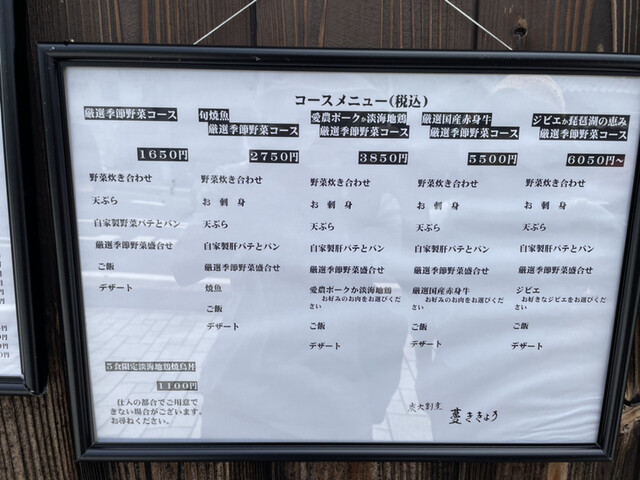 コースメニュー(税込)
厳選季節野菜コース
1650円
野菜炊き合わせ
天ぷら
自家製野菜パテとパン
厳選季節野菜盛合せ
ご飯
デザート
旬焼魚
厳選季節野菜コース
2750円
野菜炊き合わせ
お 刺 身
天ぷら
自家製肝パテとパン
厳選季節野菜盛合せ
焼魚
ご飯
デザート
愛農ポークか淡海地鶏
厳選季節野菜コース
3850円
野菜炊き合わせ
お 刺 身
天ぷら
自家製肝パテとパン
厳選季節野菜盛合せ
愛農ポークか淡海地鶏
お好みのお肉をお選びくだ
さい
ご飯
デザート
厳選国産赤身牛
厳選季節野菜コース
5500円
野菜炊き合わせ
お 刺 身
天ぷら
自家製肝パテとパン
厳選季節野菜盛合せ
厳選国産赤身牛
お好みのお肉をお選びくだ
さい
ご飯
デザート
ジビエか琵琶湖の恵み
厳選季節野菜コース
6050円~
野菜炊き合わせ
お 刺 身
天ぷら
自家製肝パテとパン
厳選季節野菜盛合せ
ジビエ
お好きなジビエをお選びくだ
さい
ご飯
デザート
5食限定淡海地鶏焼鳥丼
1100円
仕入の都合でご用意で
きない場合がございます。
お尋ねください。
炭火割烹
ききょう